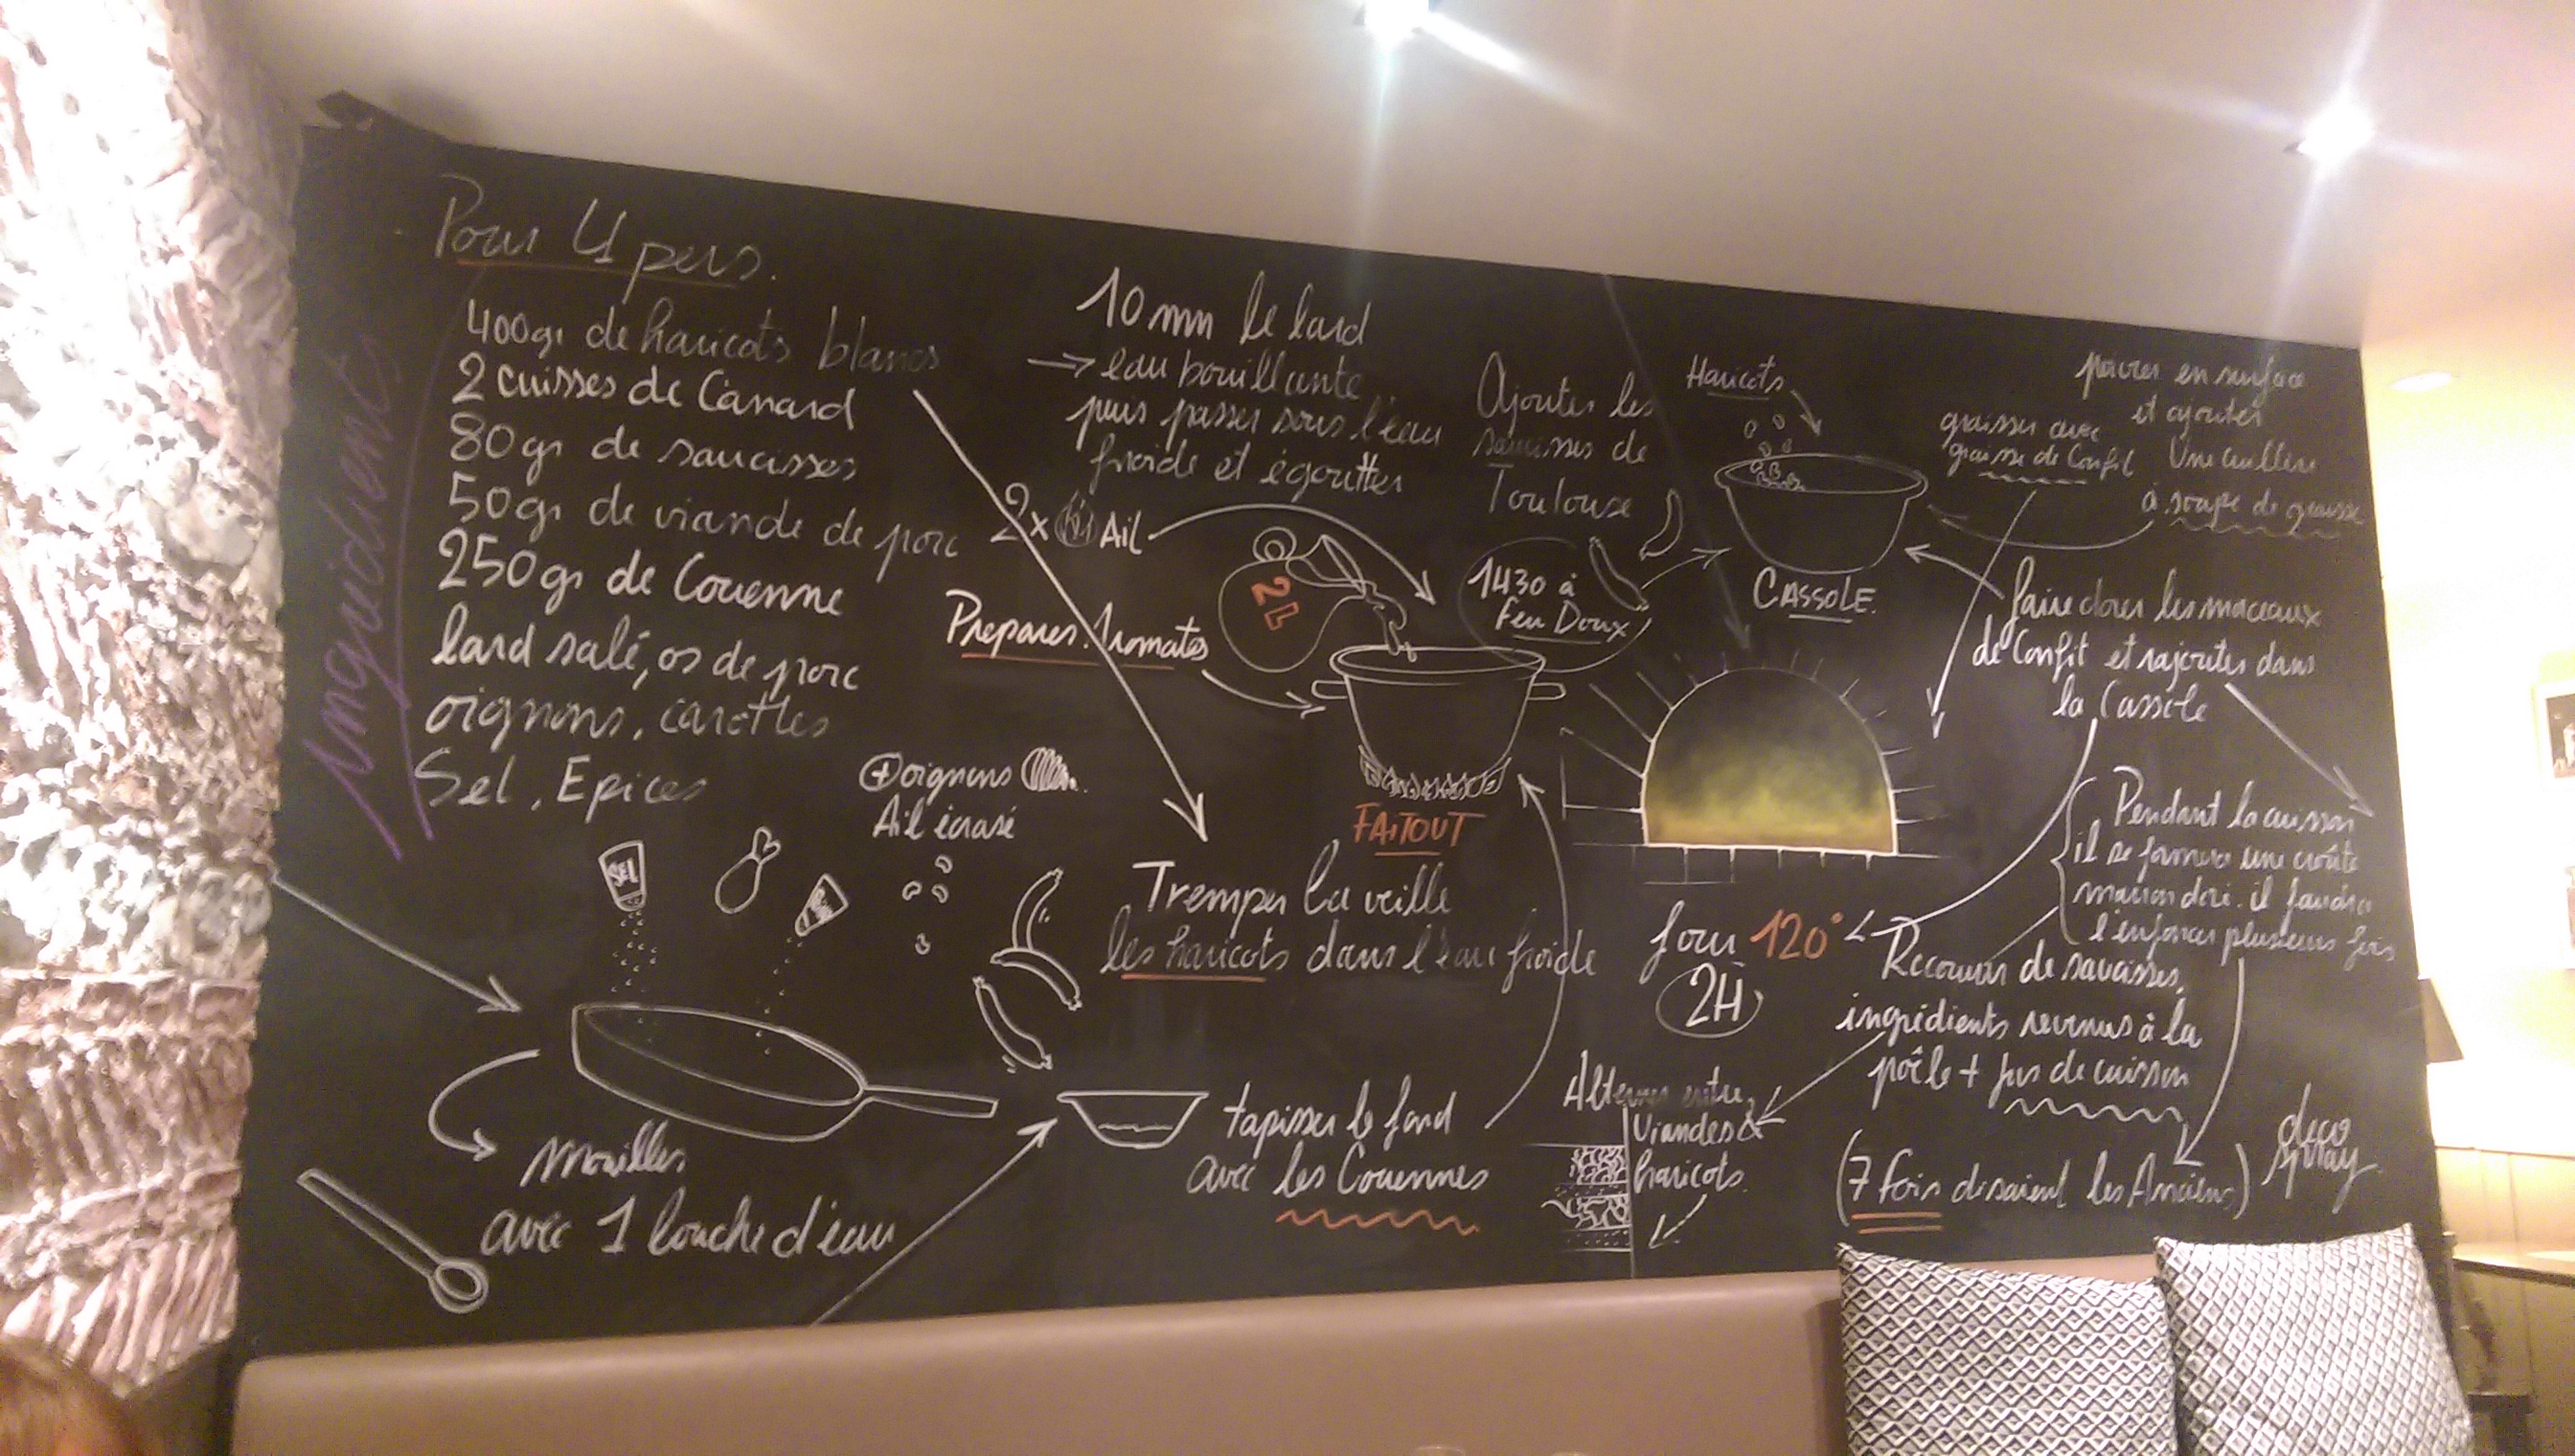 Ingrédients
Pour 4 pers.
400gr de haricots blancs
2 cuisses de Canard
80gr de saucisses
50gr de viande de porc
250gr de Couenne
lard salé, os de porc
oignons, carottes
Sel, Epices
SEL
+ oignons
Ail écrasé
mouiller
avec 1 louche d'eau
10 mn le lard
eau bouillante
puis passer sous l'eau
froide et égoutter
2x Ail
Preparer
2L
FAITOUT
Tremper la veille
les haricots dans l'eau froide
tapisser le fond
avec les Couennes
Ajouter les
saucisses de
Toulouse
1H30 à
Feu Doux
Haricots
CASSOLE
graisser avec
graisse de Confit
poivrer en surface
et ajouter
Une cuillère
à soupe de graisse
faire dorer les morceaux
de Confit et rajouter dans
la Cassole
four 120°
2H
Pendant la cuisson
il se formera une croûte
marron doré. il faudra
l'enfoncer plusieurs fois
Recouvrir de saucisses,
ingrédients revenus à la
poêle + jus de cuisson
Alterner entre
Viandes &
haricots
(7 fois disaient les Anciens)
deco
spray